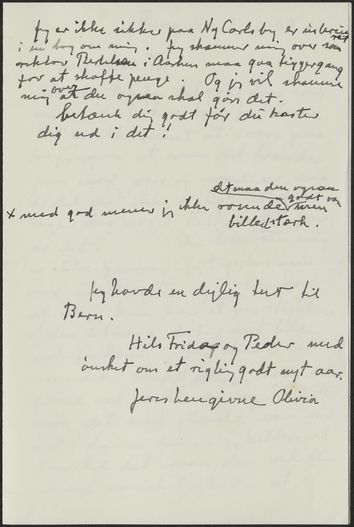 Jeg er ikke sikker paa Ny Carlsby. er interes
set
i en bog om mig. Jeg skammer mig over som
rektor i Aarhus maa gaa tiggergang
for at skaffe penge. Og jeg vil skamme
mig over at du ogsaa skal gøre det.
Betænk dig godt før du kaster
dig ud i det!
det maa den ogsaa
godt være
x med god mener jeg ikke rosende men
billedstærk.
Jeg havde en dejlig tur til
Bern.
Hils Frida og Peder med
ønsket om et rigtig godt nyt aar.
Jeres hengivne Olivia